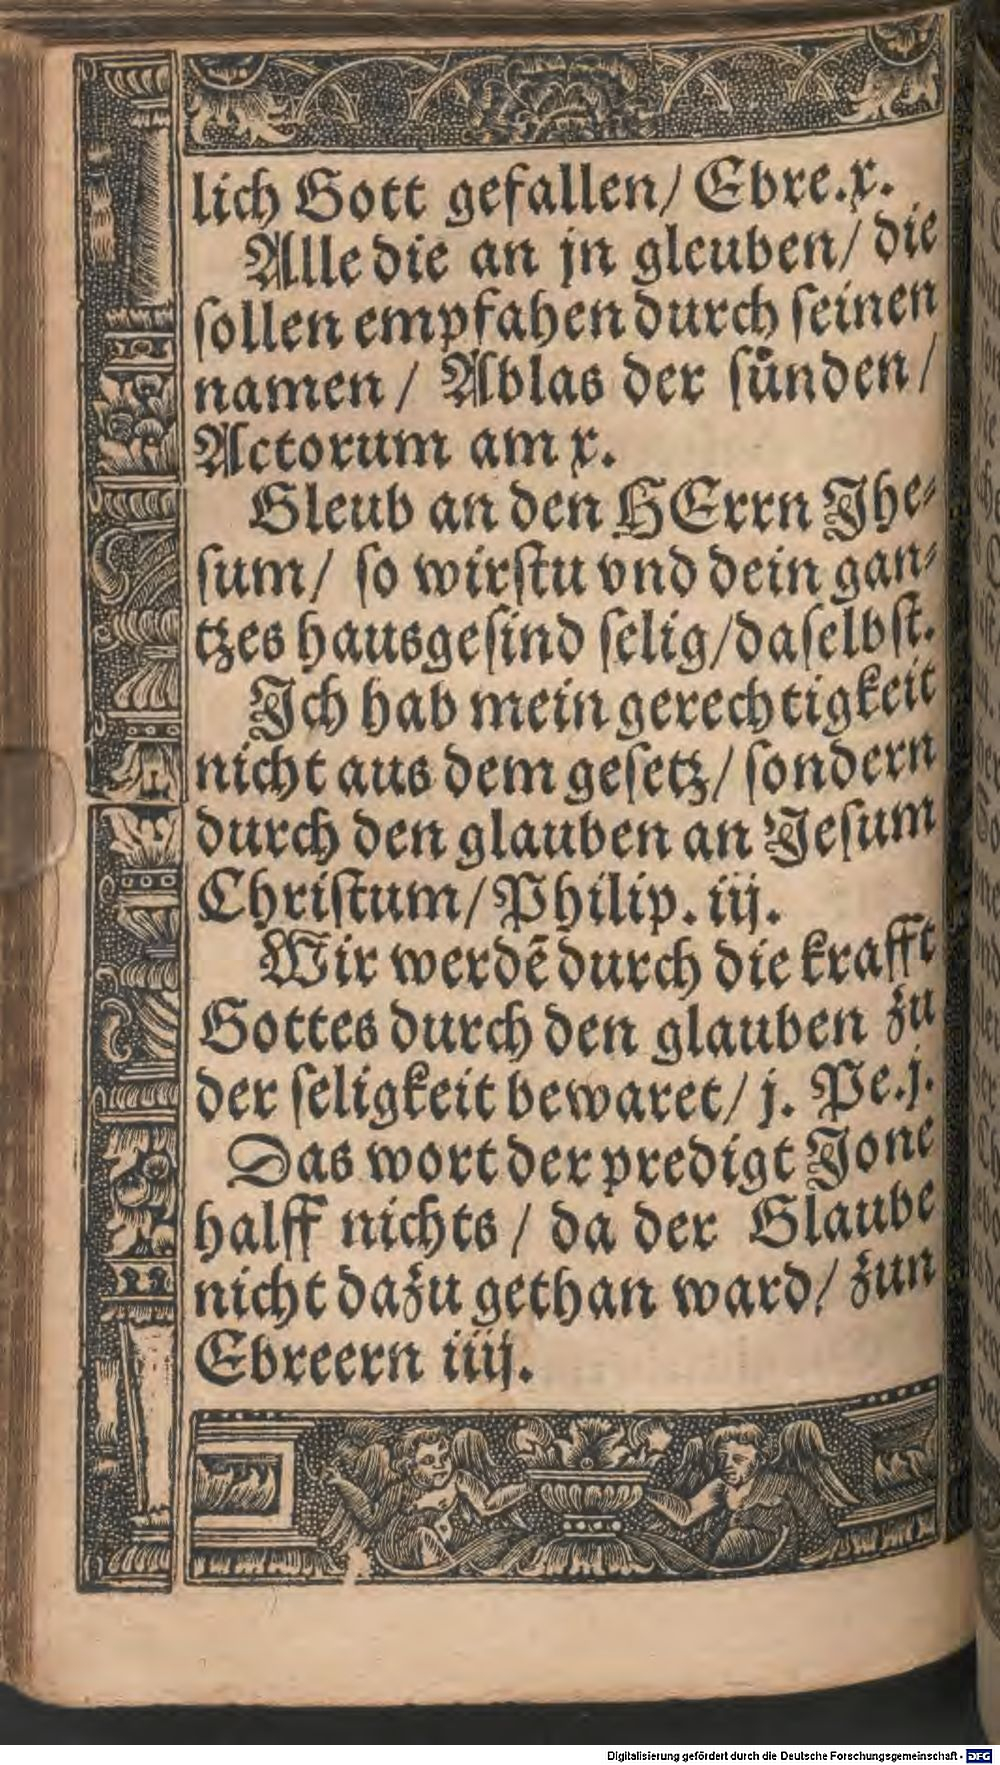 lich Gott gefallen/ Ebre.x.
Alle die an jn gleuben/ die
ſollen empfahen durch ſeinen
namen / Ablas der ſuͤnden/
Actorum am x.
Gleub an den HErrn Jhe⸗
ſum/ ſo wirſtu vnd dein gan⸗
tzes hausgeſind ſelig/daſelbſt.
Jch hab mein gerechtigkeit
nicht aus dem geſetz/ ſondern
durch den glauben an Jeſum
Chriſtum/Philip. iij.
Wir werdē durch die krafft
Gottes durch den glauben zu
der ſeligkeit bewaret/ j. Pe.j.
Das wort der predigt Jone
halff nichts / da der Glaube
nicht dazu gethan ward/ zun
Ebreern iiij.
Digitalisierung gefördert durch die Deutsche Forschungsgemeinschaft - DFG